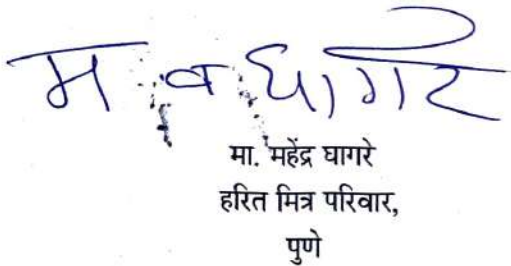 म. व घागरे
मा. महेंद्र घागरे
हरित मित्र परिवार,
पुणे